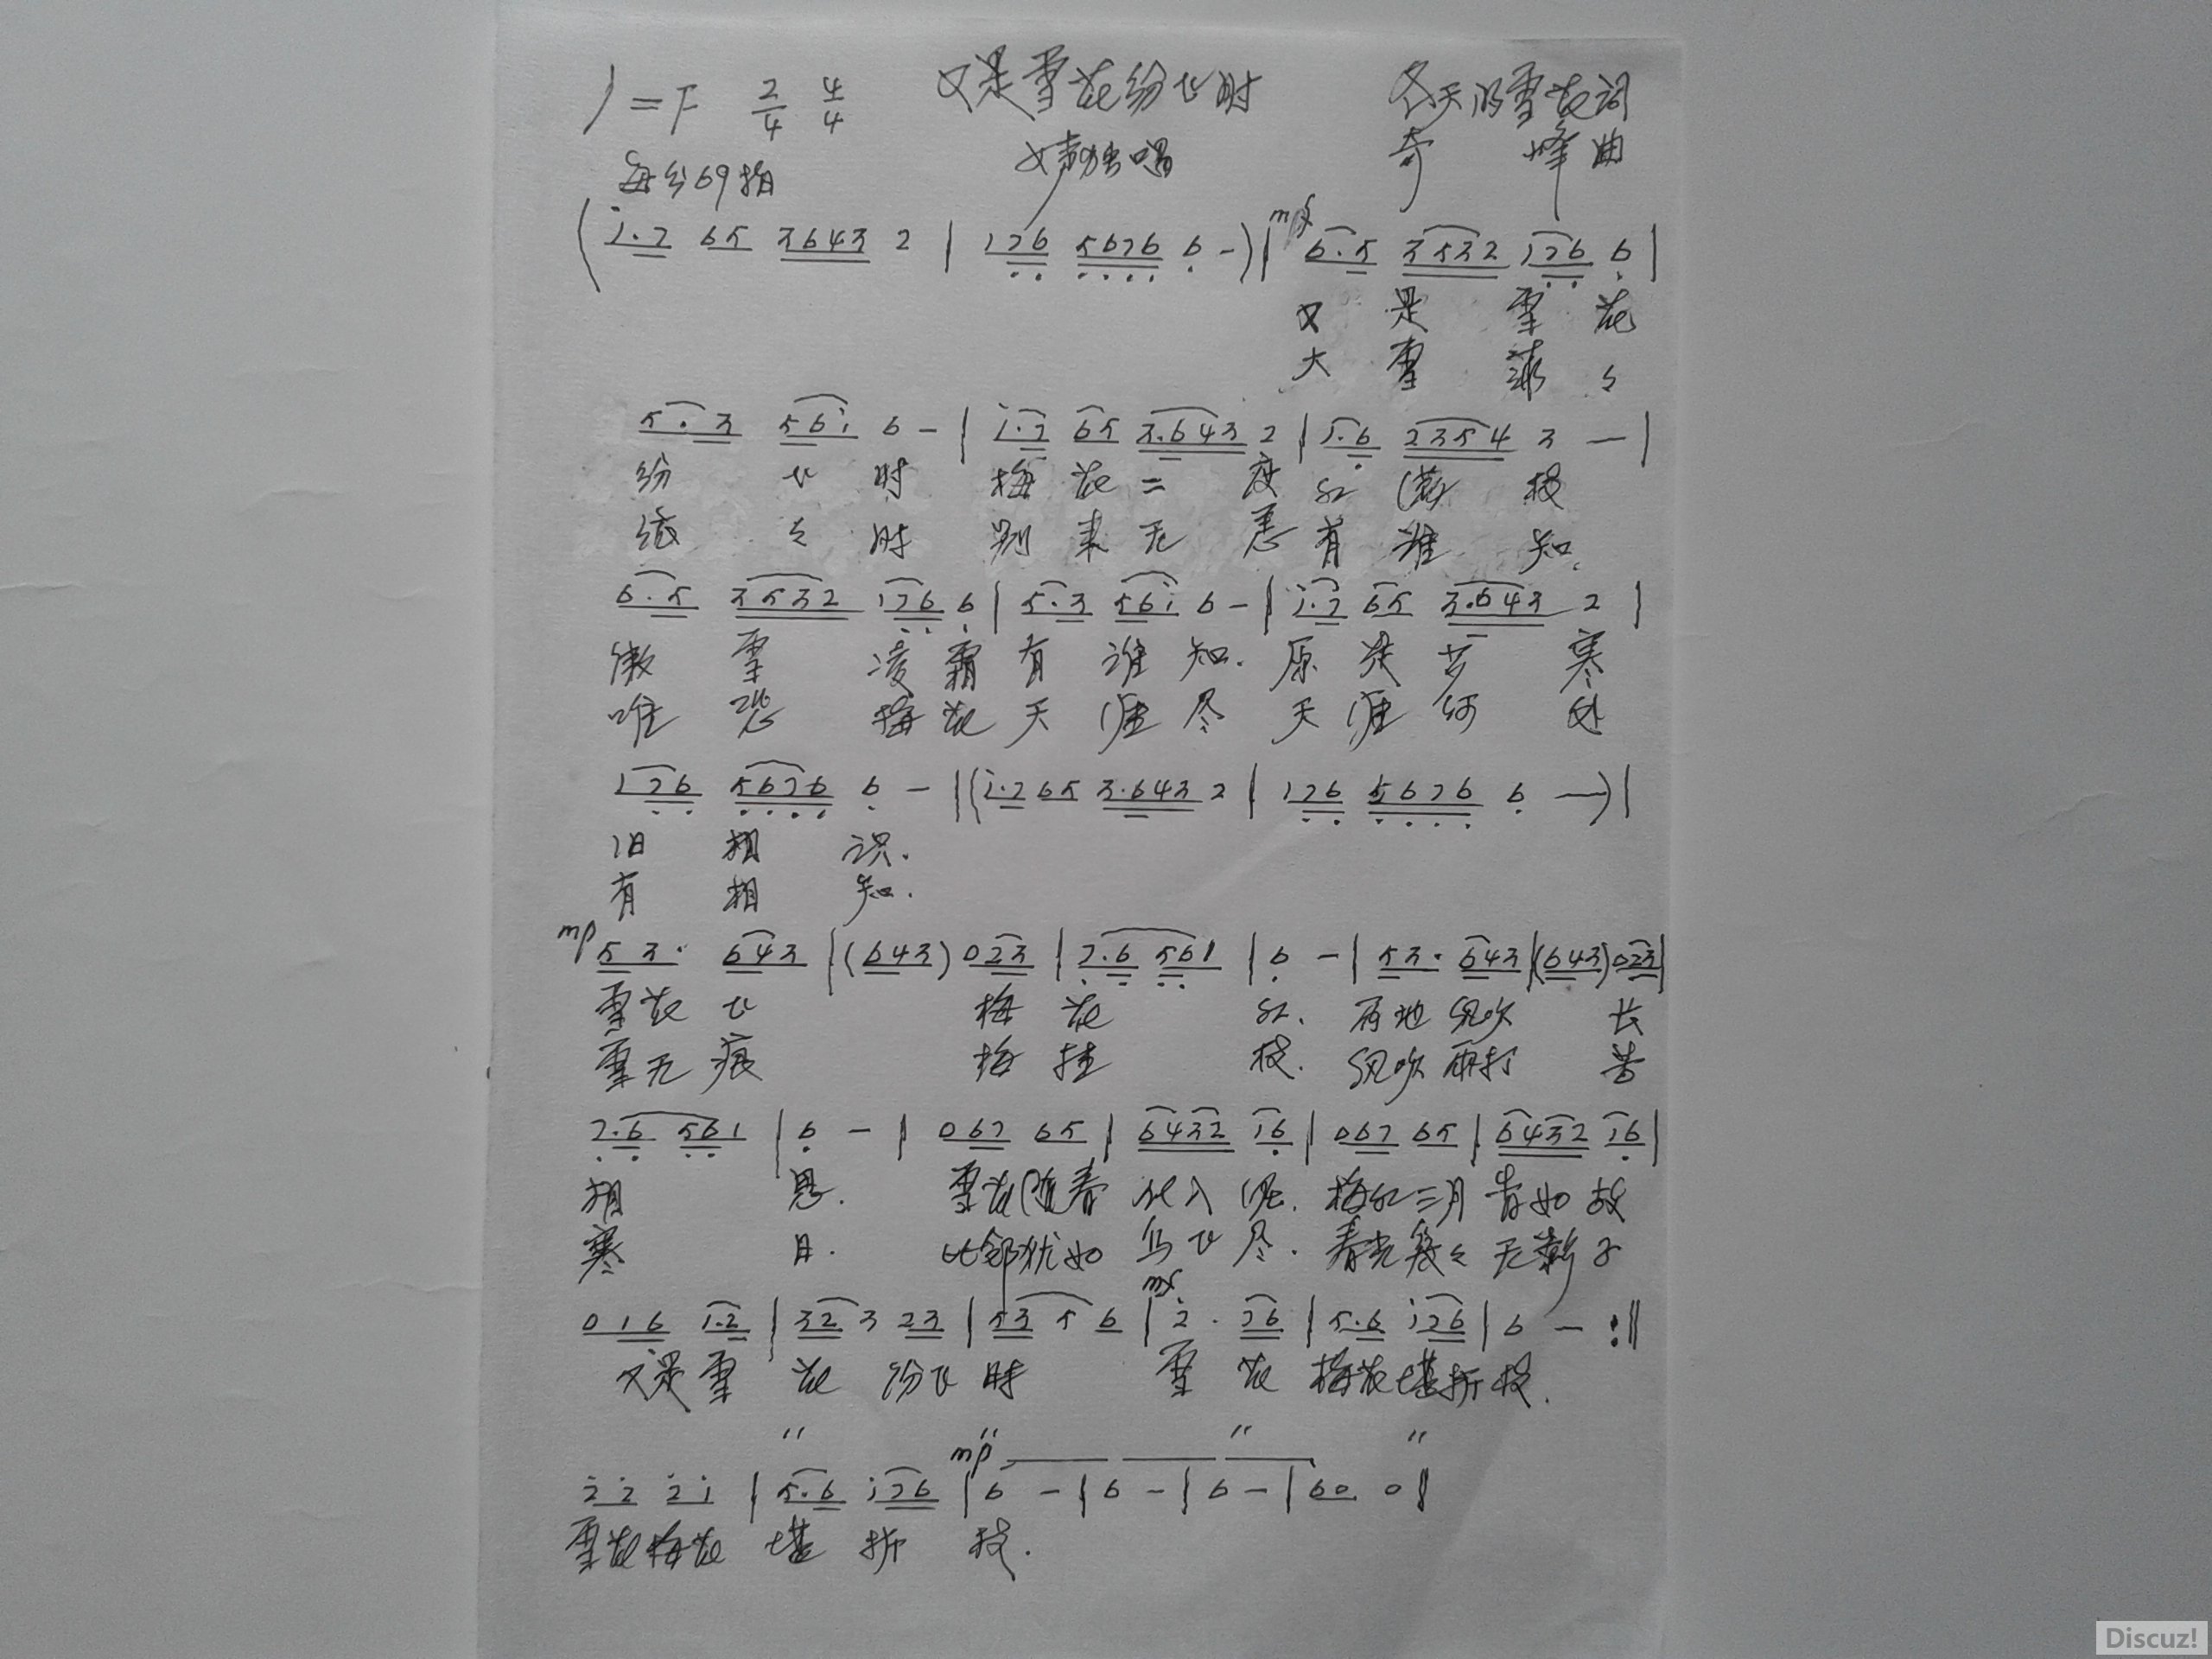 1=F 2/4 4/4 又是雪花纷飞时 冬天的雪花词
每分69拍 女声独唱 奇峰曲
(i.7 65 3643 2 | 176 5676 6 -)| mf 6.5 3532 176 6 |
又 是 雪 花
大 雪 菲 々
5.3 56i 6 - | i.7 65 3.643 2 | 1.6 2354 3 — |
纷 飞 时 梅花二度红满枝
时 别来无恙有谁知.
6.5 3532 176 6 | 5.3 56i 6 - | i.7 65 3.643 2 |
傲雪凌霜有谁知. 原是苦寒
唯恐梅花天涯尽 天涯何处
176 5676 6 - |(i.7 65 3.643 2 | 176 5676 6 —)|
旧相识.
有相知.
mp 53. 643 |(643) 023 | 7.6 561 | 6 - | 53. 643 |(643) 023 |
雪花飞 梅花红. 两地风吹 长
雪无痕 梅挂枝. 风吹雨打 苦
7.6 561 | 6 - | 067 65 | 6432 16 | 067 65 | 6432 16 |
相思. 雪花随春化入泥. 梅红三月青如故
寒日. 比邻犹如鸟飞尽. 春光几々无新
016 1.2 | 32 3 23 | 53 5 6 | mf 2. 76 | 5.6 i76 | 6 - :‖
又是雪花纷飞时 雪花梅花堪折枝.
〃 〃 〃 〃
22 2i | 5.6 i76 | mp 6 - | 6 - | 6 - | 60 0 ‖
雪花梅花堪折枝.
Discuz!